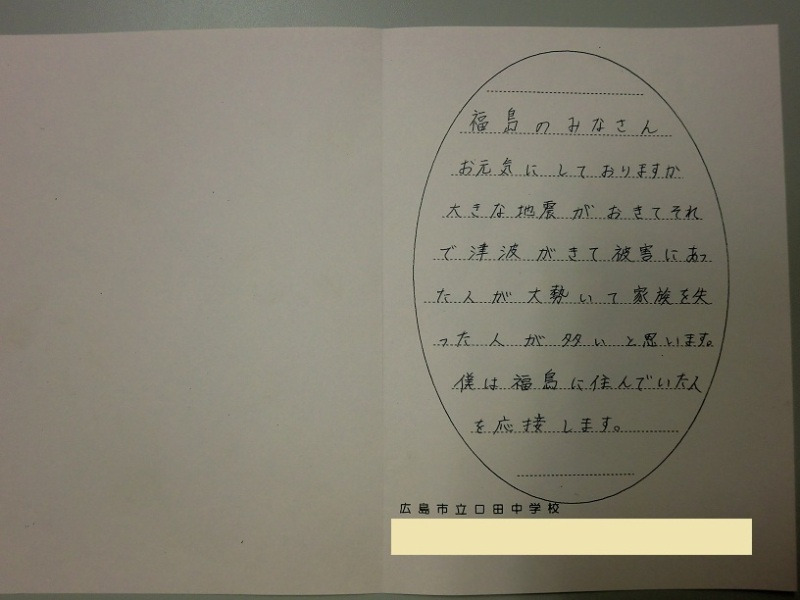 福島のみなさん
お元気にしておりますか
大きな地震がおきてそれ
で津波がきて被害にあっ
た人が大勢いて家族を失
った人が多いと思います。
僕は福島に住んでいた人
を応接します。
広島市立口田中学校